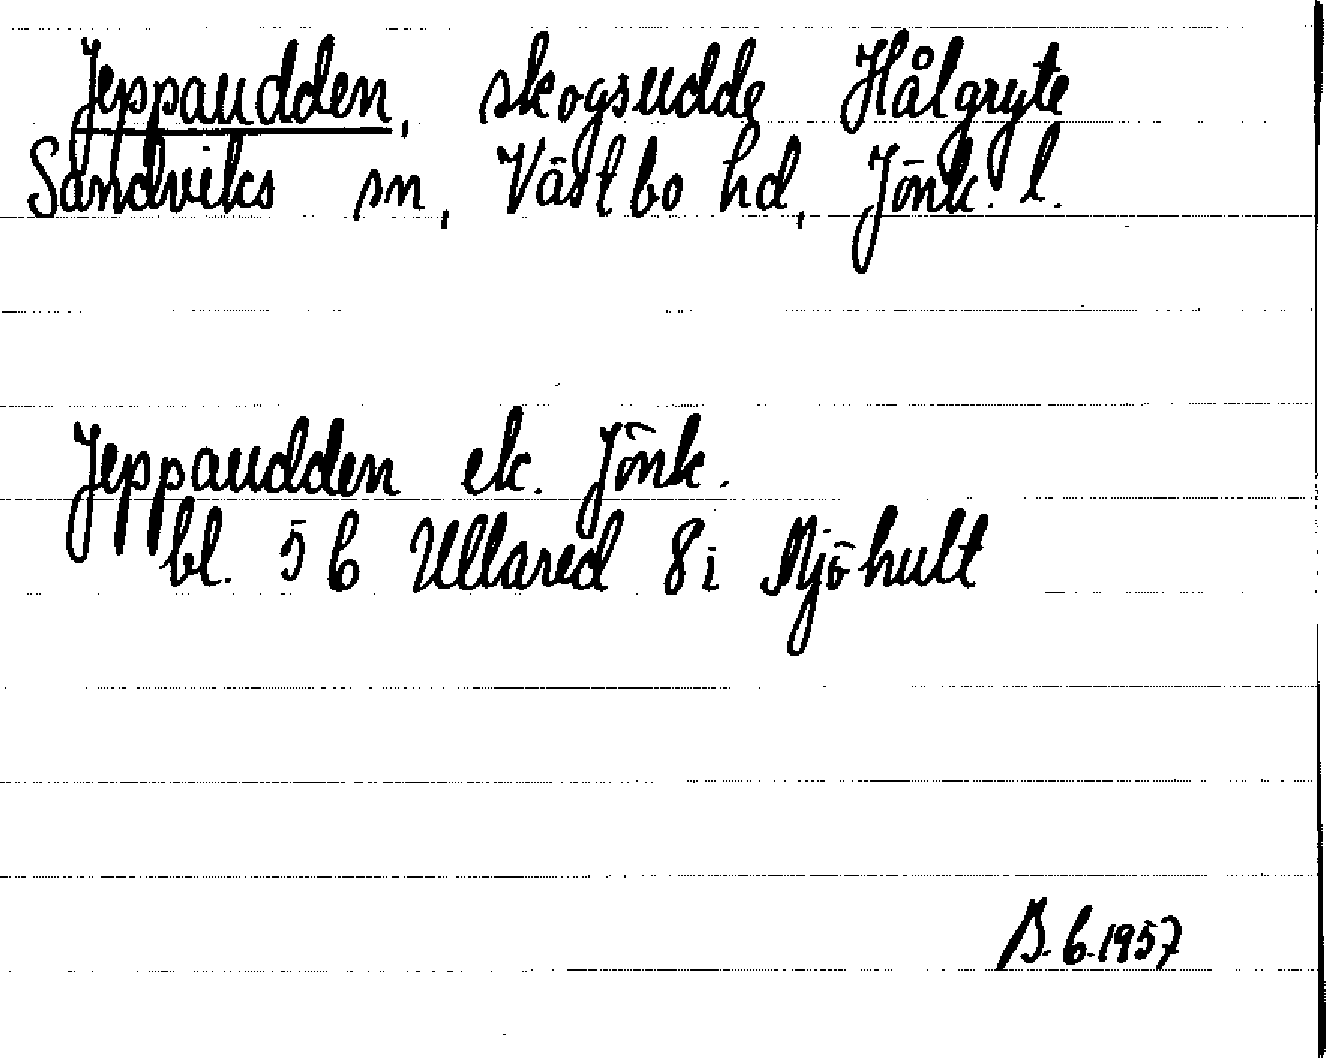 Jeppaudden, skogsudde Hålgryte
Sandviks sn, Västbo hd, Jönk. l.
Jeppaudden ek. Jönk.
bl. 5 b Ullared 8 i Mjöhult
B. G. 1957